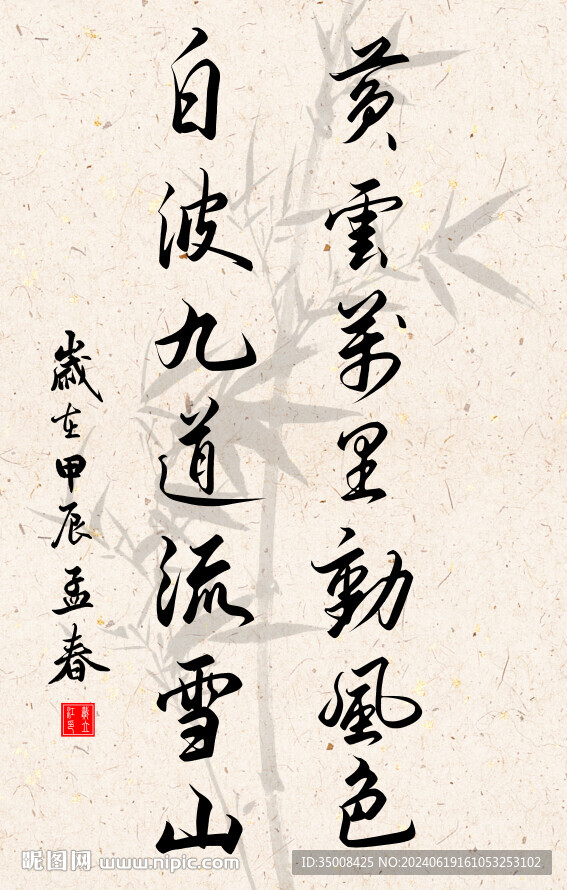 黄雲萬里動風色
白波九道流雪山
歲在甲辰孟春
昵图网 www.nipic.com
ID:35008425 NO:20240619161053253102